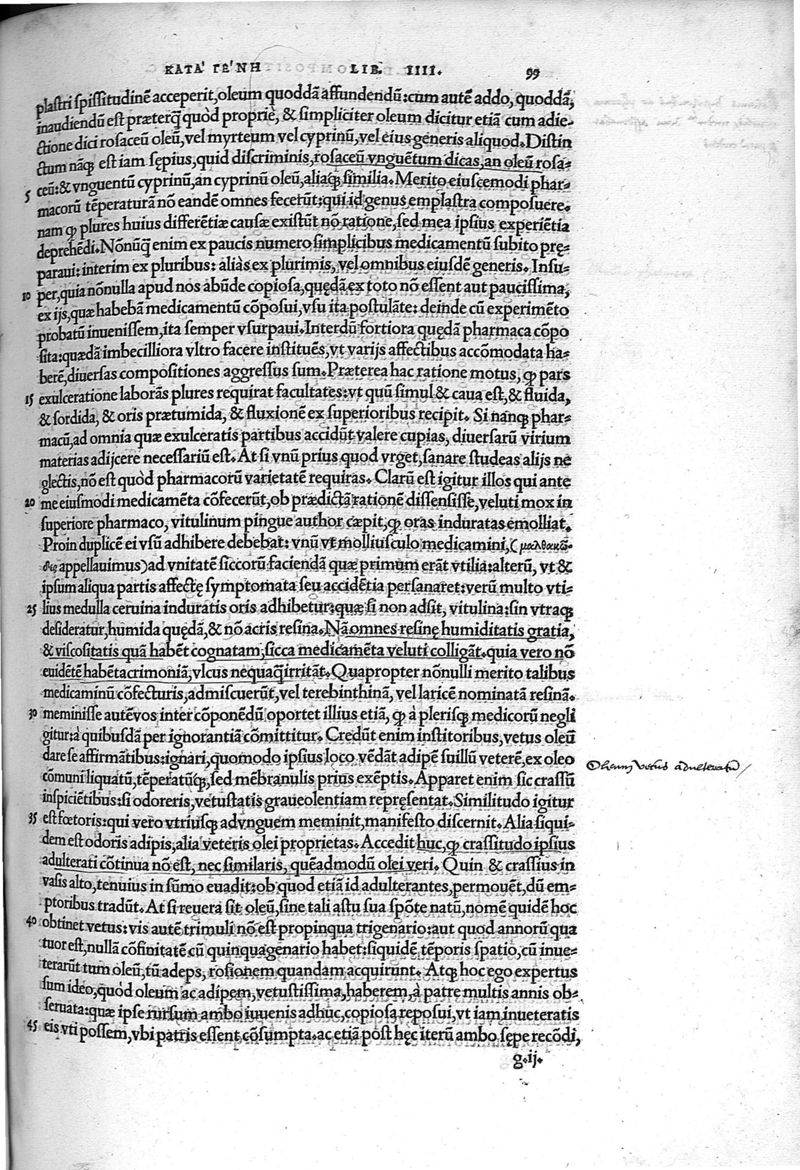 ΚΑΤΑ' ΓΕ'ΝΗ LIB. IIII. 99
plastri spissitudinẽ acceperit, oleum quoddã affundendũ: cum autẽ addo, quoddã,
inaudiendũ est præterq̃ quòd propriè, & simpliciter oleum dicitur etiã cum adie-
ctione dici rosaceũ oleũ, vel myrteum vel cyprinũ, vel eius generis aliquod. Distin
ctum nãq; est iam sępius, quid discriminis, rosaceũ vnguẽtum dicas, an oleũ rosa-
5 ceũ: & vnguentũ cyprinũ, an cyprinũ oleũ, aliaq; similia. Merito eiuscemodi phar-
macorũ tẽperaturã nõ eandẽ omnes fecerũt: qui id genus emplastra composuere.
nam ꝙ plures huius differẽtiæ causæ existũt nõ ratione, sed mea ipsius experiẽtia
deprehẽdi. Nõnũq̃ enim ex paucis numero simplicibus medicamentũ subito prę-
paraui: interim ex pluribus: aliàs ex plurimis, vel omnibus eiusdẽ generis. Insu-
10 per, quia nõnulla apud nos abũde copiosa, quędã ex toto nõ essent aut paucissima,
ex ijs, quæ habebã medicamentũ cõposui, vsu ita postulãte: deinde cũ experimẽto
probatũ inuenissem, ita semper vsurpaui. Interdũ fortiora quędã pharmaca cõpo
sita: quædã imbecilliora vltro facere instituẽs, vt varijs affectibus accõmodata ha-
berẽ, diuersas compositiones aggressus sum. Præterea hac ratione motus, ꝙ pars
15 exulceratione laborãs plures requirat facultates: vt quũ simul & caua est, & fluida,
& sordida, & oris prætumida, & fluxionẽ ex superioribus recipit. Si nanq; phar-
macũ, ad omnia quæ exulceratis partibus accidũt valere cupias, diuersarũ virium
materias adijcere necessariũ est. At si vnũ prius quod vrget, sanare studeas alijs ne
glectis, nõ est quòd pharmacorũ varietatẽ requiras. Clarũ est igitur illos qui ante
20 me eiusmodi medicamẽta cõfecerũt, ob prædictã rationẽ dissensisse, veluti mox in
superiore pharmaco, vitulinum pingue author cæpit, ꝙ oras induratas emolliat.
Proin duplicẽ ei vsũ adhibere debebat: vnũ vt molliusculo medicamini, (
appellauimus) ad vnitatẽ siccorũ faciendã quæ primum erãt vtilia: alterũ, vt &
ipsum aliqua partis affectę symptomata seu accidẽtia persanaret: verũ multo vti-
25 lius medulla ceruina induratis oris adhibetur: quæ si non adsit, vitulina: sin vtraq;
desideratur, humida quędã, & nõ acris resina. Nã omnes resinę humiditatis gratia,
& viscositatis quã habẽt cognatam, sicca medicamẽta veluti colligãt. quia vero nõ
euidẽtẽ habẽt acrimoniã, vlcus nequaq̃ irritãt. Quapropter nõnulli merito talibus
medicaminũ cõfecturis, admiscuerũt, vel terebinthinã, vel laricẽ nominatã resinã.
30 meminisse autẽ vos inter cõponẽdũ oportet illius etiã, ꝙ à plerisq; medicorũ negli
gitur: à quibusdã per ignorantiã cõmittitur. Credũt enim institoribus, vetus oleũ
dare se affirmãtibus: ignari, quomodo ipsius loco vẽdãt adipẽ suillũ veterẽ, ex oleo
cõmuni liquatũ, tẽperatũq;, sed mẽbranulis prius exẽptis. Apparet enim sic crassũ
inspiciẽtibus: si odoreris, vetustatis graueolentiam repręsentat. Similitudo igitur
35 est fœtoris: qui vero vtriusq; ad vnguem meminit, manifesto discernit. Alia siqui-
dem est odoris adipis, alia veteris olei proprietas. Accedit huc, ꝙ crassitudo ipsius
adulterati cõtinua nõ est, nec similaris, quẽadmodũ olei veri. Quin & crassius in
vasis alto, tenuius in sũmo euadit: ob quod etiã id adulterantes, permouẽt, dũ em-
ptoribus tradũt. At si reuera sit oleũ, sine tali astu sua spõte natũ, nomẽ quidẽ hoc
40 obtinet vetus: vis autẽ trimuli nõ est propinqua trigenario: aut quod annorũ qua
tuor est, nullã cõfinitatẽ cũ quinquagenario habet: siquidẽ, tẽporis spatio, cũ inue-
terarũt tum oleũ, tũ adeps, rosionem quandam acquirunt. Atq; hoc ego expertus
sum ideo, quòd oleum ac adipem, vetustissima, haberem, à patre multis annis ob-
seruata: quæ ipse rursum ambo iuuenis adhuc, copiosa reposui, vt iam inueteratis
45 eis vti possem, vbi patris essent cõsumpta. ac etiã post hęc iterũ ambo sępe recõdi,
g.ij.
vetus adulteratũ